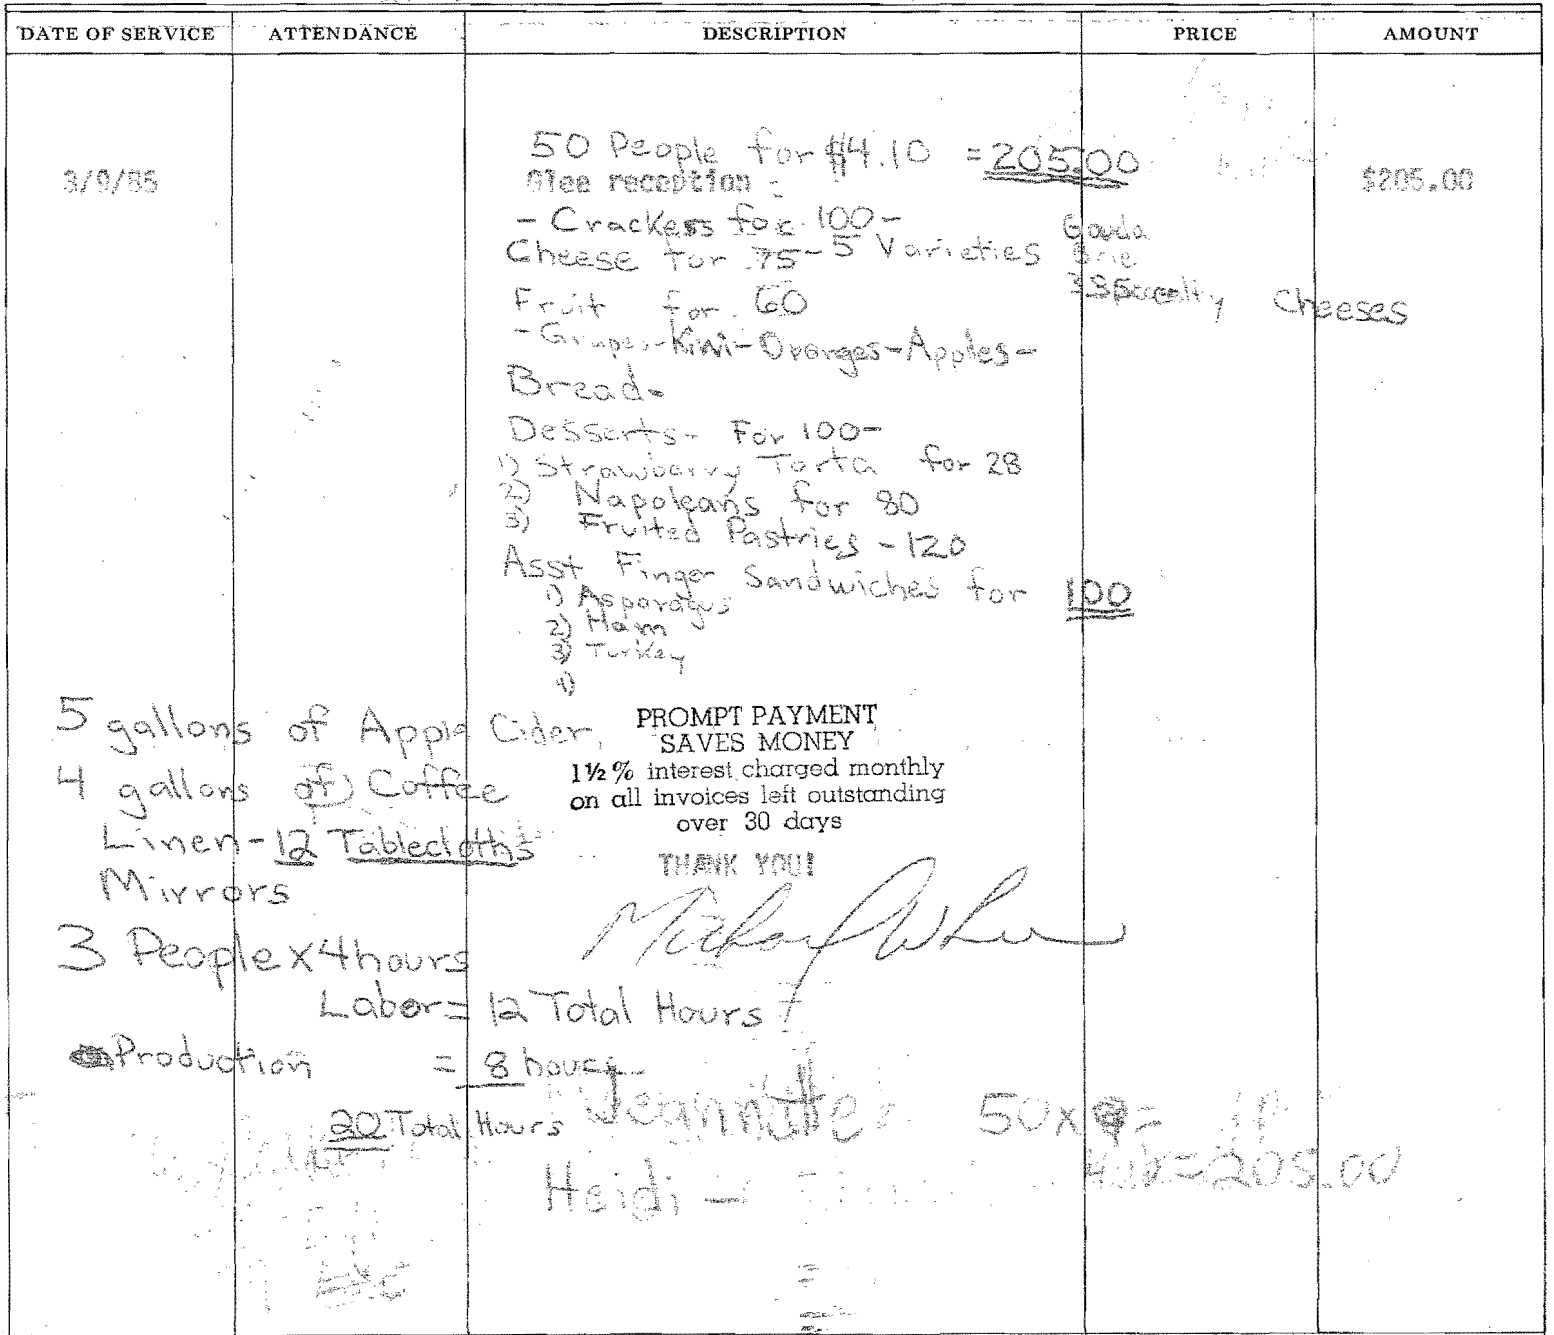 DATE OF SERVICE ATTENDANCE DESCRIPTION PRICE AMOUNT
50 People for $4.10 = 205.00
3/9/85 Glee reception $205.00
- Crackers for 100-
Cheese for 75 - 5 Varieties Gouda
Brie
3 Specialty Cheeses
Fruit for 60
- Grapes-Kiwi-Oranges-Apples-
Bread-
Desserts- For 100-
1) Strawberry Torta for 28
2) Napoleans for 80
3) Fruited Pastries - 120
Asst Finger Sandwiches for 100
1) Asparagus
2) Ham
3) Turkey
4)
5 gallons of Apple Cider
4 gallons of Coffee
Linen-12 Tablecloths
Mirrors
3 People x 4 hours
Labor = 12 Total Hours
Production = 8 hours
20 Total Hours
PROMPT PAYMENT
SAVES MONEY
1½% interest charged monthly
on all invoices left outstanding
over 30 days
THANK YOU!
Jeannette 50 x =
Heidi - = 205.00